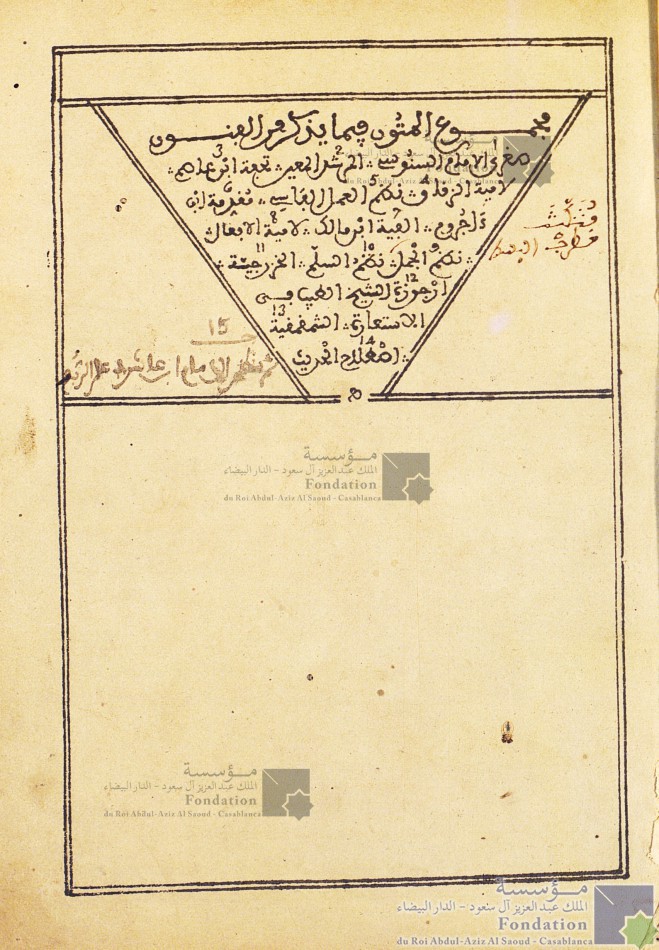 مجموع المتون فيما يذكر من الفنون
صغرى الامام السنوسي 2 المرشد المعين 3 تحفة ابن عاصم
لامية الزقاق 4 نظم العمل الفاسي 5 مقدمة ابن
ءاجروم الفية ابن مالك لامية الافعال
نظم الجمل 10 نظم السلم 11 الخزرجية
12 ارجوزة الشيخ الطيب في
الاستعارة 13 الشمقمقية
14 اصطلاح الحديث
15
مؤسسة
الملك عبد العزيز آل سعود - الدار البيضاء
Fondation
du Roi Abdul-Aziz Al Saoud - Casablanca
مؤسسة
الملك عبد العزيز آل سعود - الدار البيضاء
Fondation
du Roi Abdul-Aziz Al Saoud - Casablanca
مؤسسة
الملك عبد العزيز آل سعود - الدار البيضاء
Fondation
du Roi Abdul-Aziz Al Saoud - Casablanca